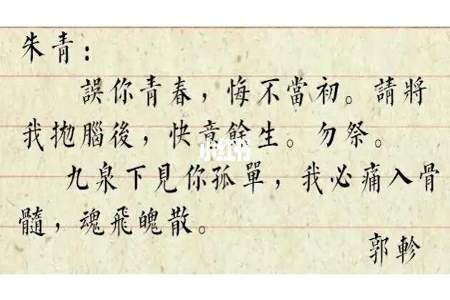 朱青：
誤你青春，悔不當初。請將
我拋腦後，快意餘生。勿祭。
小红书
九泉下見你孤單，我必痛入骨
髓，魂飛魄散。
郭軫